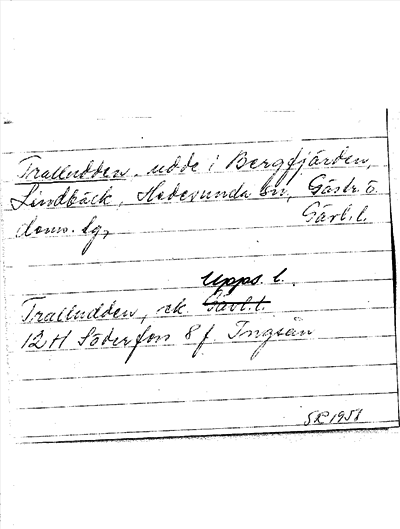 Tralludden, udde i Bergfjärden,
Lindbäck, Hedesunda sn, Gästr. ö.
doms. lg, Gävl. l.
Upps. l.
Tralludden, ek. Gävl. l.
12 H Söderfors 8 f. Ingsån
SR 1951